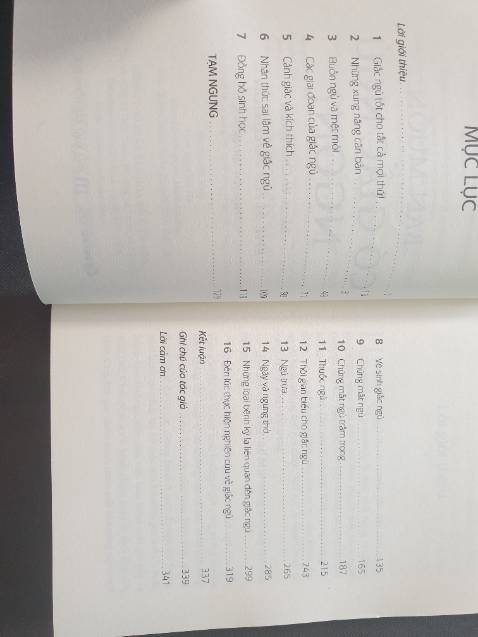 MỤC LỤC
Lời giới thiệu
1 Giấc ngủ tốt cho tất cả mọi thứ!
2 Những xung năng căn bản
3 Buồn ngủ và mệt mỏi
4 Các giai đoạn của giấc ngủ
5 Cảnh giác và kích thích
6 Nhận thức sai lầm về giấc ngủ 109
7 Đồng hồ sinh học 113
TẠM NGƯNG 129
8 Vệ sinh giấc ngủ 135
9 Chứng mất ngủ 165
10 Chứng mất ngủ trầm trọng 187
11 Thuốc ngủ 215
12 Thời gian biểu cho giấc ngủ 243
13 Ngủ trưa 265
14 Ngáy và ngưng thở 285
15 Những loại bệnh kỳ lạ liên quan đến giấc ngủ 299
16 Đến lúc thực hiện nghiên cứu về giấc ngủ 319
Kết luận 337
Ghi chú của tác giả 339
Lời cảm ơn 341